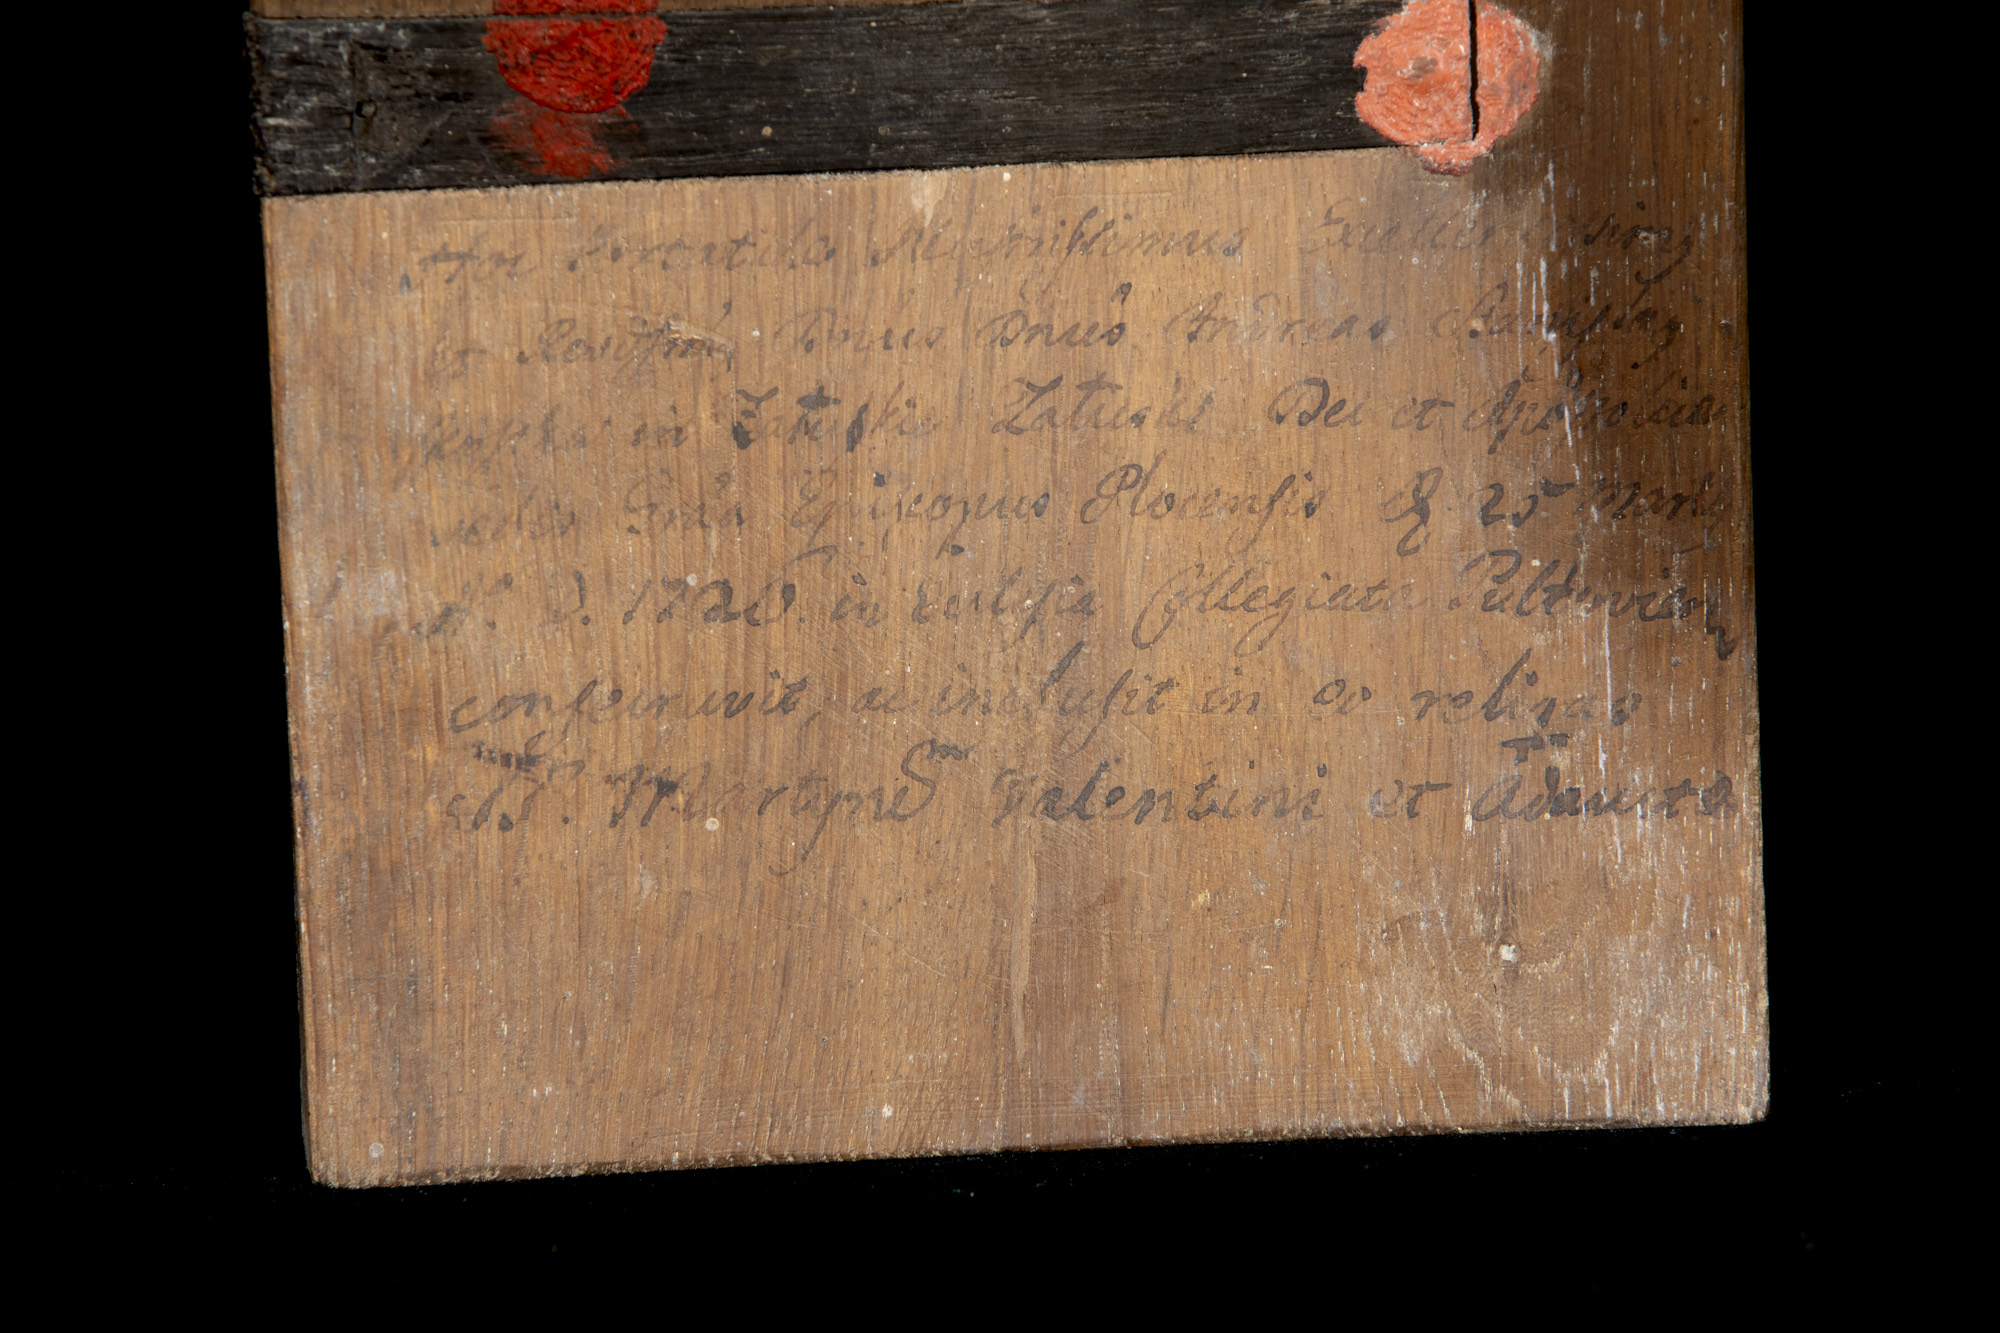 Hoc Portatile Illustrissimus Excellen
et Dnus Dnus Andreas
in Załuskie Załuski Dei et Apostolica
sedis Gratia Episcopus Plocensis d. 25 Martij
A. D. 1726. in Eccl̄sia Collegiata Pultovien
consecravit, ac inclusit in eo reliqas
SS. Martyrũ Valentini et Adaucta